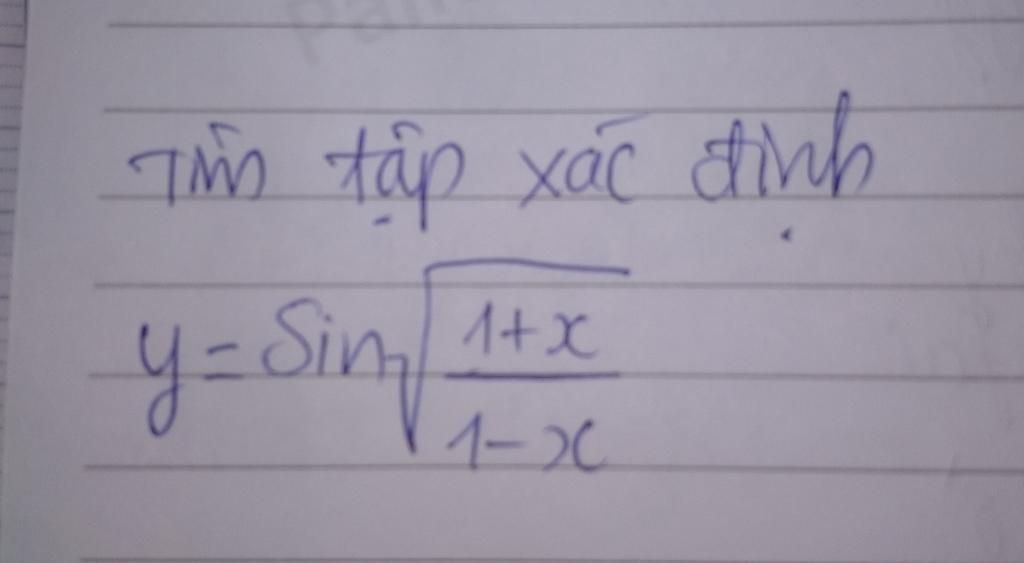 Tìm tập xác định
y = Sin√((1+x)/(1-x))